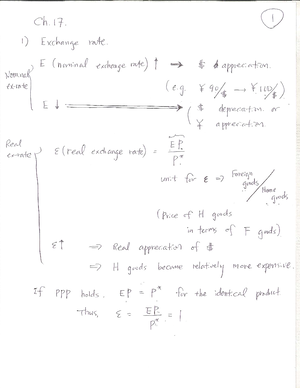 ①
Ch. 17.
1) Exchange rate.
Nominal
ex-rate
E (nominal exchange rate) ↑ → $ appreciation.
(e.g. ¥ 90/$ → ¥ 100/$)
E ↓ → $ depreciation. or
¥ appreciation
Real
ex-rate
ε (real exchange rate) = EP/P*
unit for ε ⇒ Foreign goods / Home goods
(Price of H goods
in terms of F goods)
ε↑ ⇒ Real appreciation of $
⇒ H goods become relatively more expensive.
If PPP holds. EP = P* for the identical product
Thus, ε = EP/P* = 1